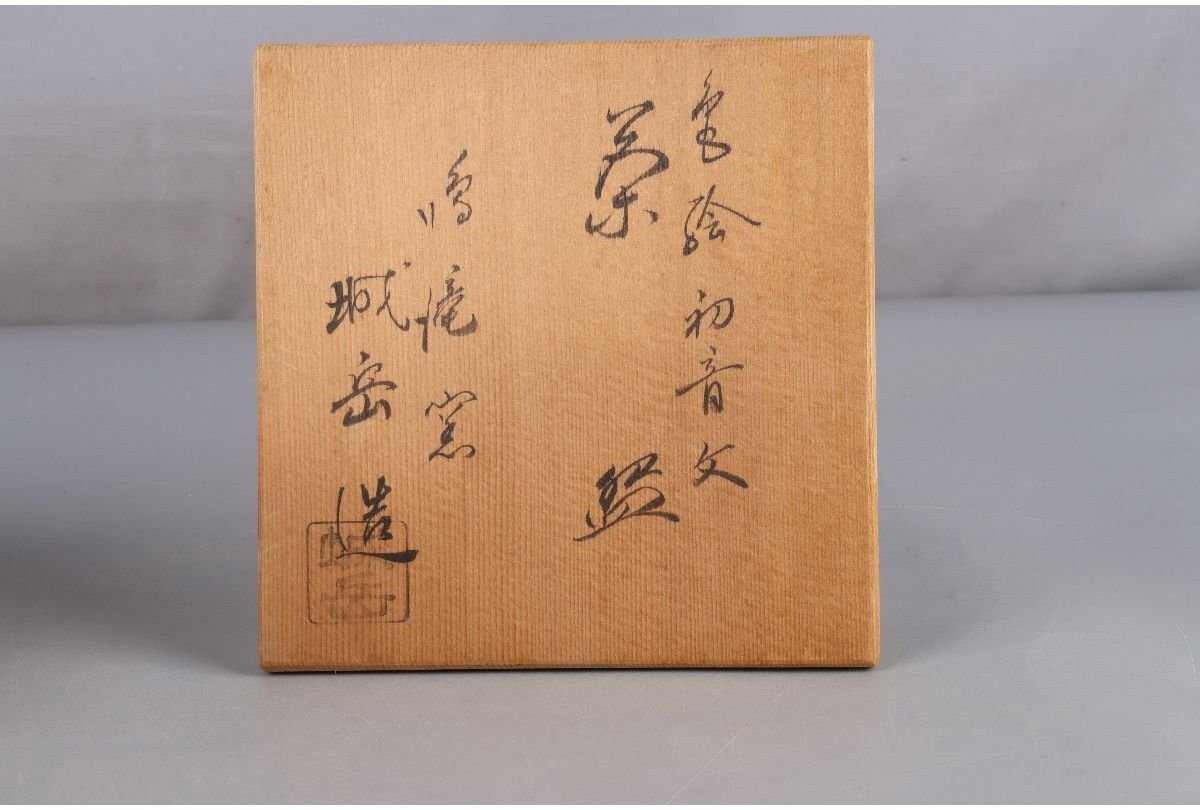 色絵初音文
茶盌
鳴滝窯
城岳造
城岳